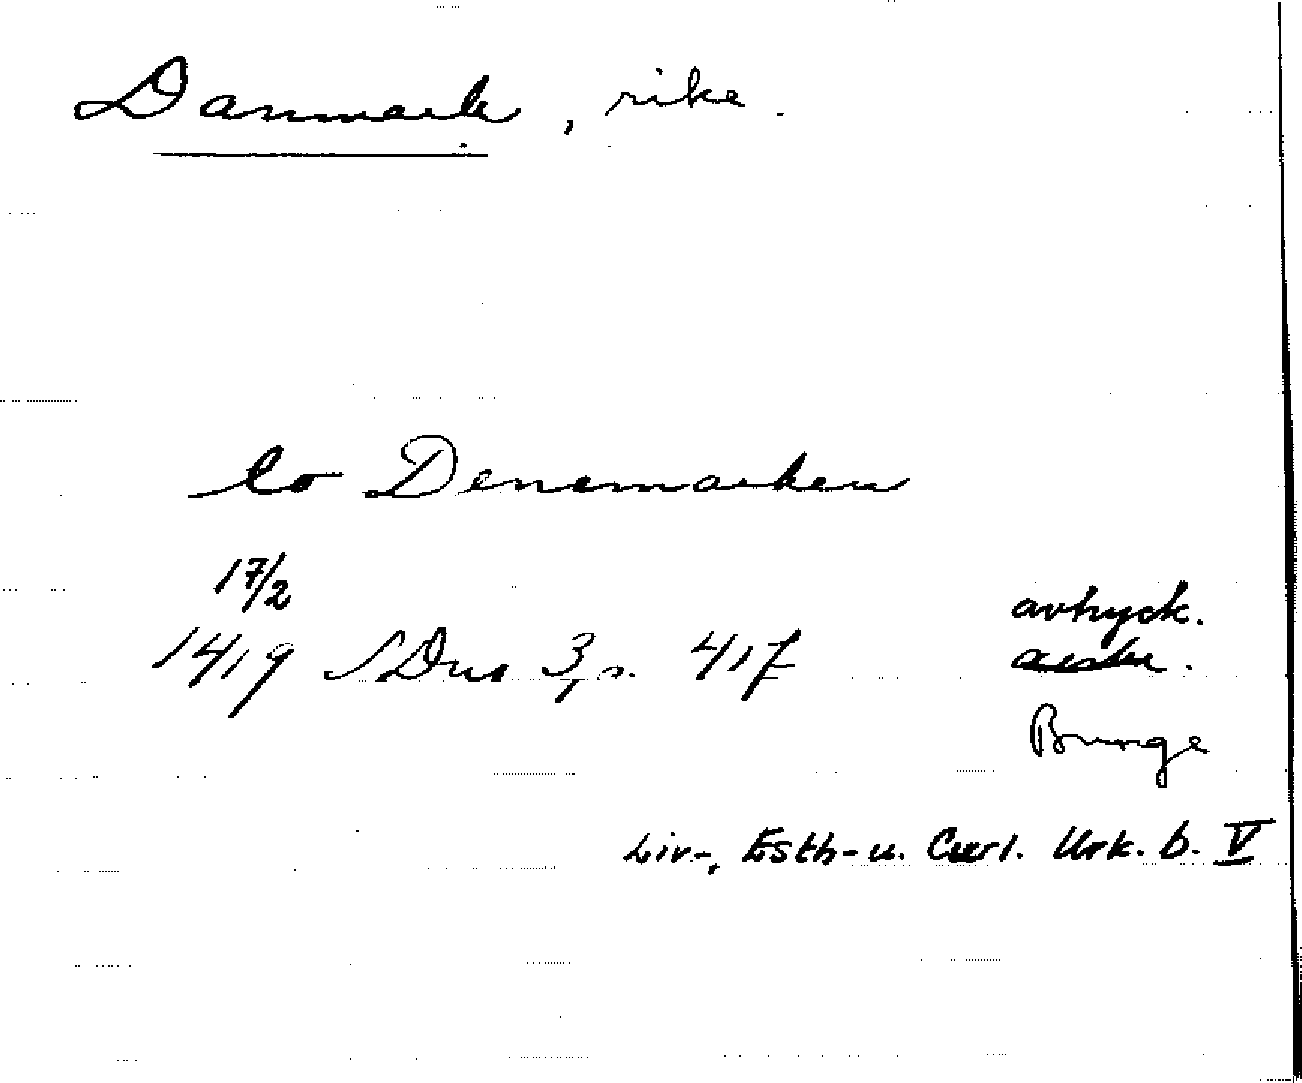 Danmark, rike.
to Denemarken
17/2
1419 SDns 3, s. 417
avtryck.
Bunge
Liv-, Esth- u. Curl. Urk. b. V